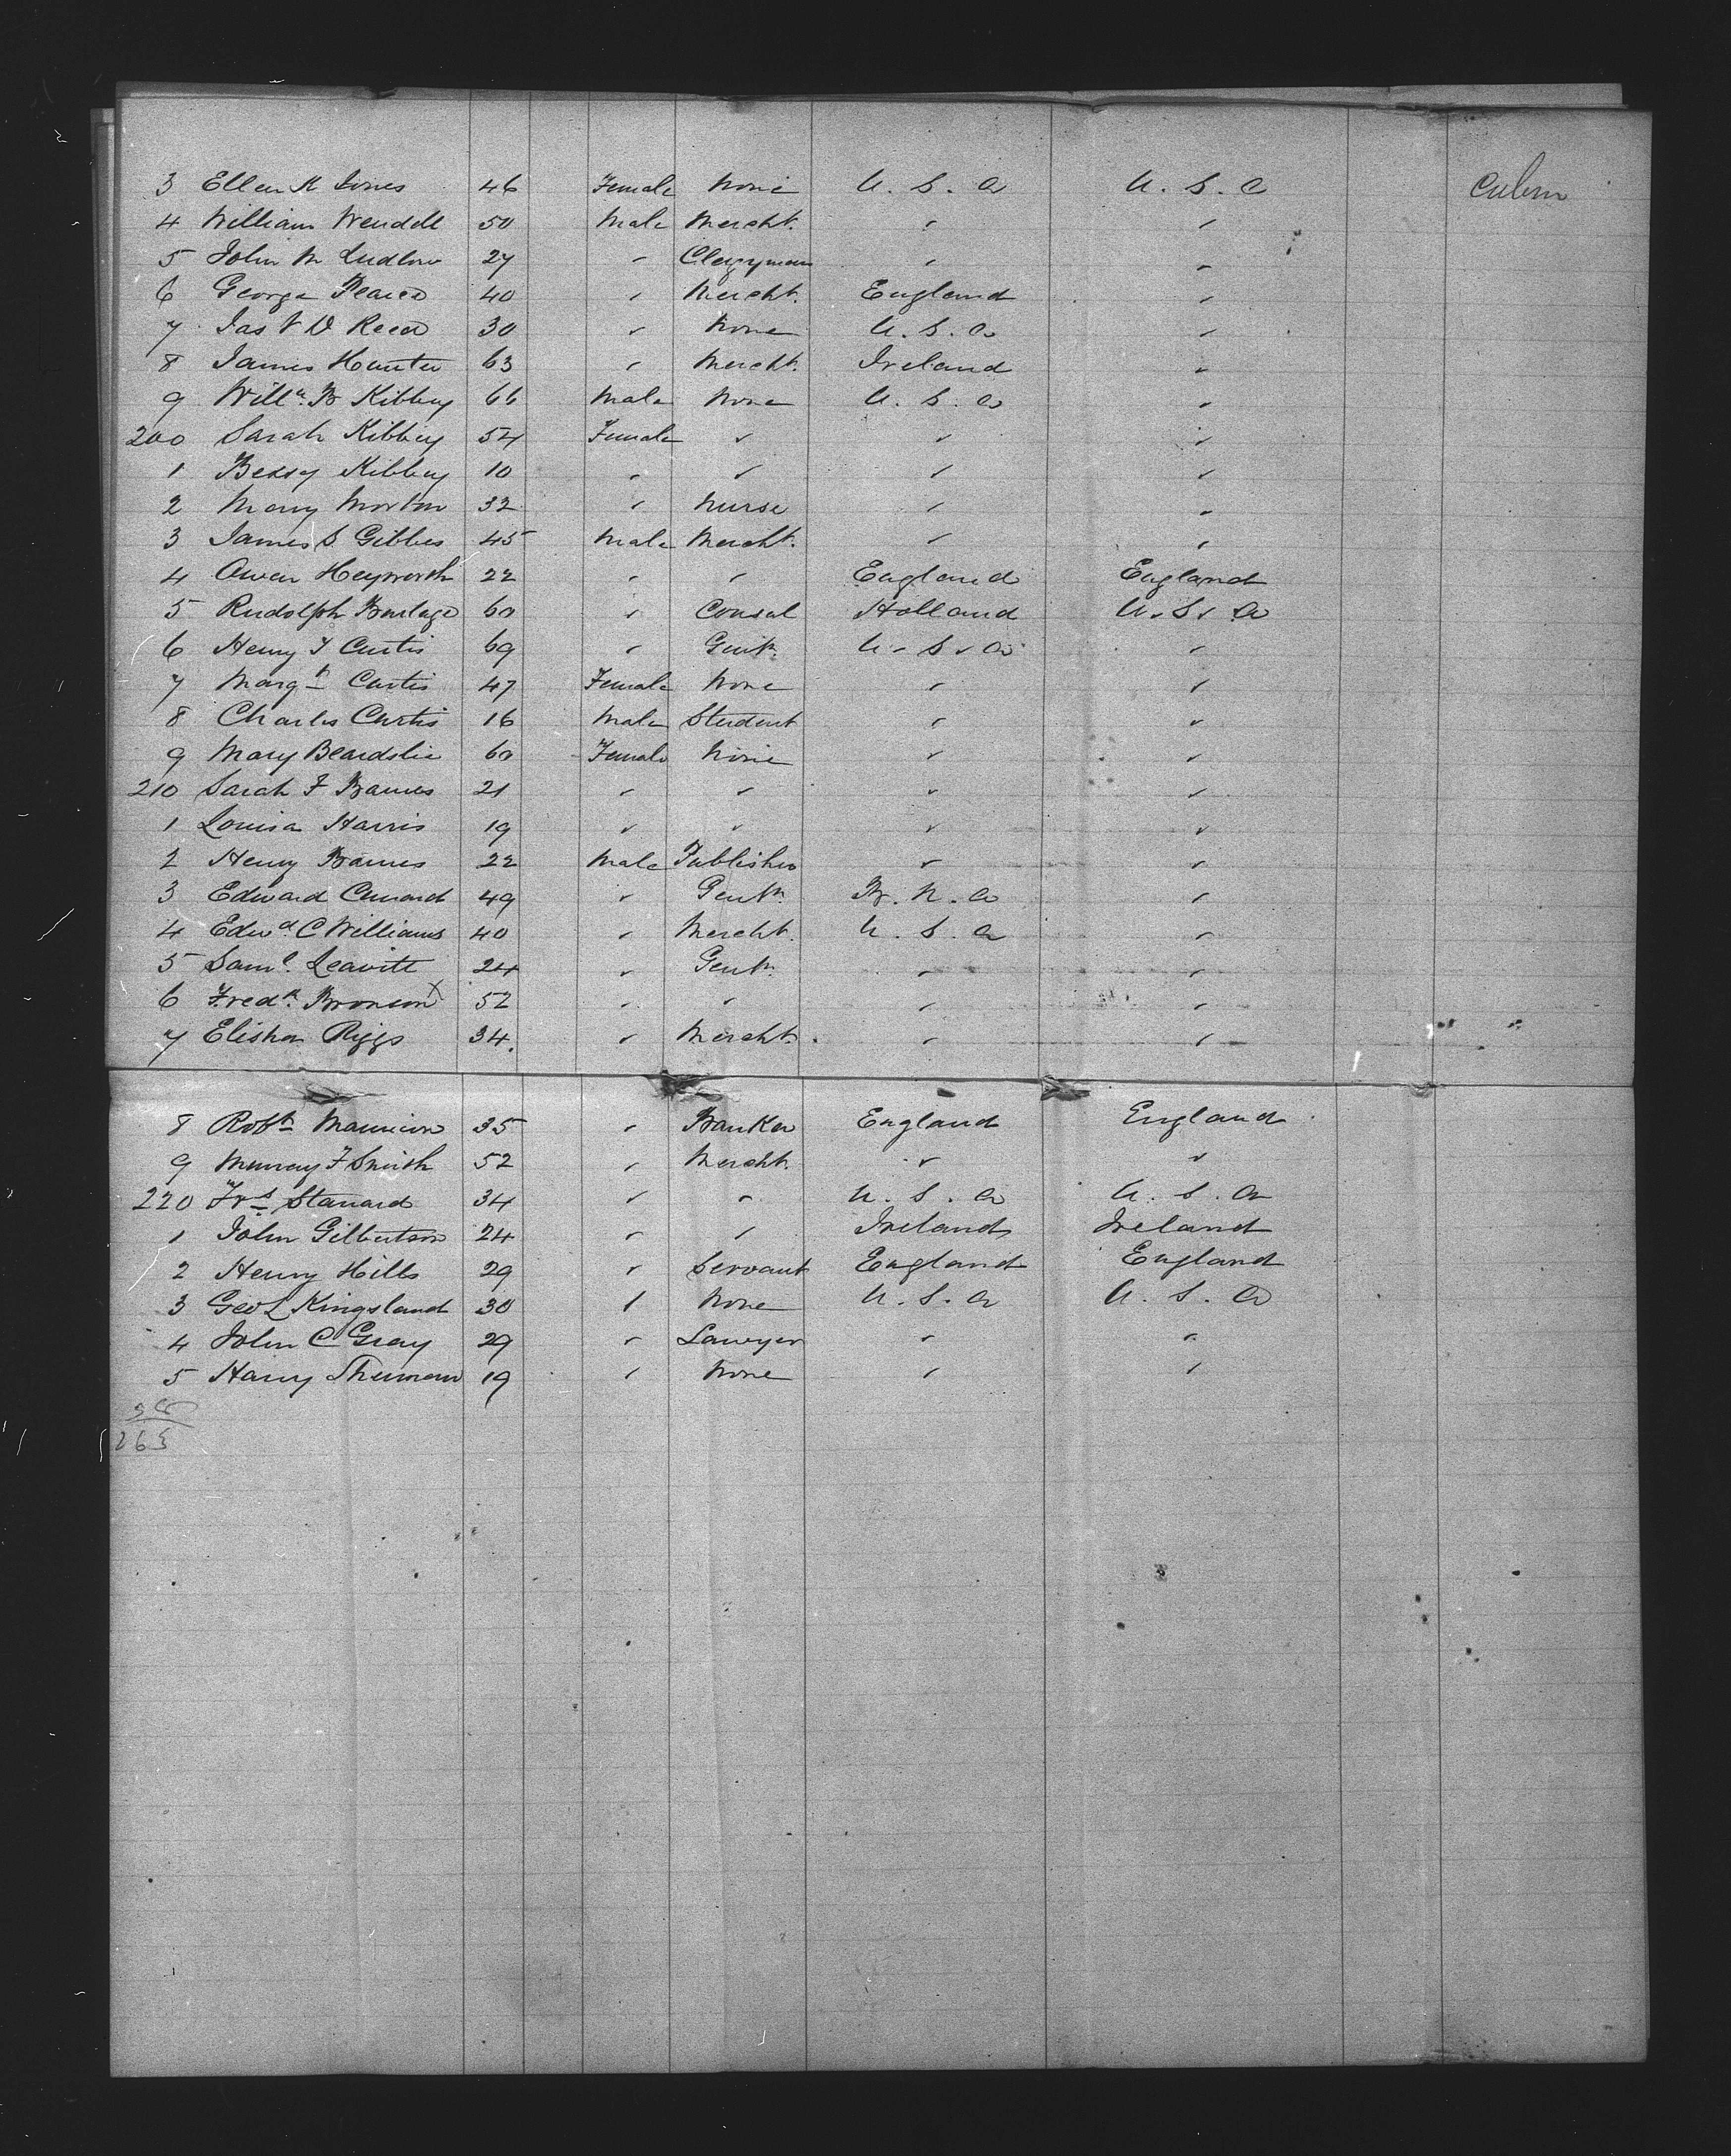 3 Ellen K Jones 46 Female None U. S. A U. S. A Cabin
4 William Wendell 50 Male Mercht. " "
5 John M Ludlow 27 " Clergyman " "
6 George Pearce 40 " Mercht. England "
7 Jas V D Reed 30 " None U. S. A "
8 James Hunter 63 " Mercht. Ireland "
9 Willm. B Kibbey 66 Male None U. S. A "
200 Sarah Kibbey 54 Female " " "
1 Bessy Kibbey 10 " " " "
2 Mary Morton 32 " Nurse " "
3 James S. Gibbes 45 Male Mercht. " "
4 Owen Heyworth 22 " " England England
5 Rudolph Burlage 60 " Consul Holland U. S. A
6 Henry J Curtis 69 " Gentn. U. S. A "
7 Margt Curtis 47 Female None " "
8 Charles Curtis 16 Male Student " "
9 Mary Beardslie 60 Female None " "
210 Sarah F Barnes 21 " " " "
1 Louisa Harris 19 " " " "
2 Henry Barnes 22 Male Publisher " "
3 Edward Cunard 49 " Gentn. B. N. A "
4 Edwd C Williams 40 " Mercht. U. S. A "
5 Saml. Leavitt 24 " Gentn. " "
6 Fredk. Bronson x 52 " " " "
7 Elisha Riggs 34. " Mercht. " "
8 Robt 35 " Banker England England
9 Murray F Smith 52 " Mercht. " "
220 Frs Stanard 34 " " U. S. A U. S. A
1 John Gilbertson 24 " " Ireland Ireland
2 Henry Hills 29 " Servant England England
3 Geo L Kingsland 30 " None U. S. A U. S. A
4 John C Gray 29 " Lawyer " "
5 Harry Sherman 19 " None " "
263